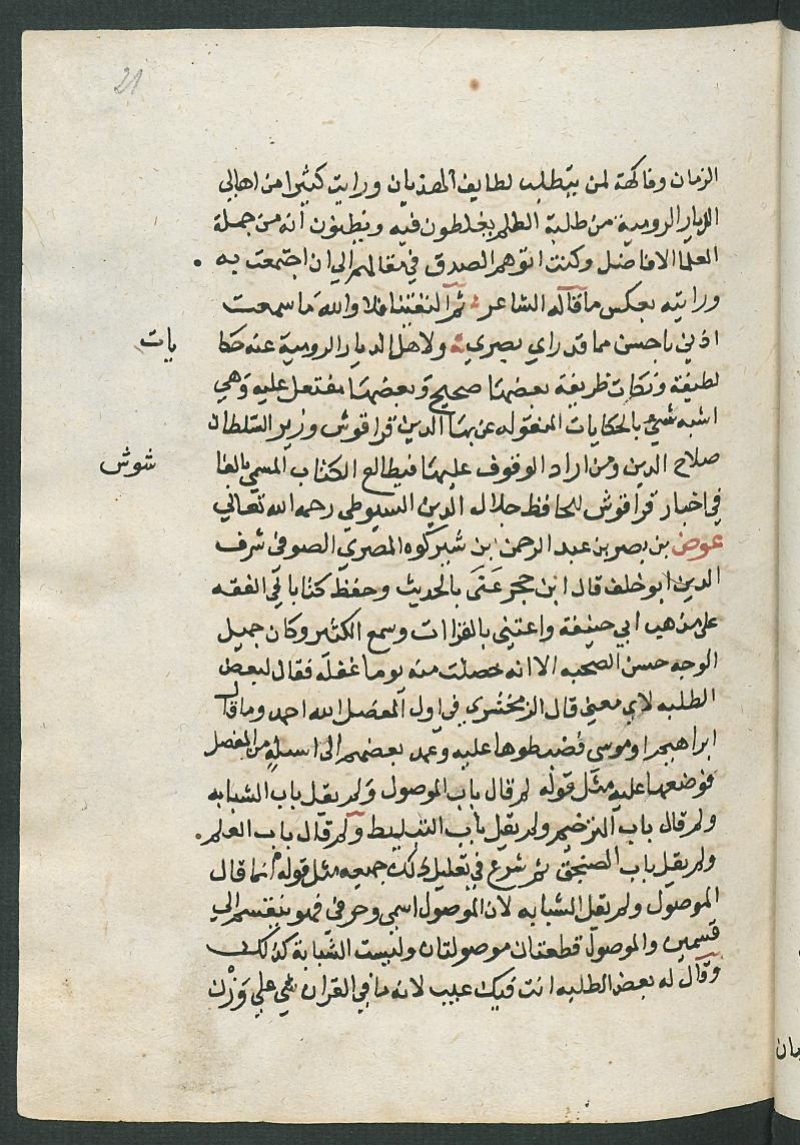 21
الزمان وفاكهة لمن يتطلب لطايف الهذيان ورايت كثيرا من اهالي
الديار الرومية من طلبة العلم يغلطون فيه ويظنون انه من جملة
العلما الافاضل وكنت اتوهم الصدق في مقالهم الي ان اجتمعت به
ورايته بعكس ما قاله الشاعر ثم التقينا فلا والله ما سمعت
اذني باحسن مما قد راي بصري ولاهل الديار الرومية عنه حكا
يات
لطيفة ونكات ظريفة بعضها صحيح وبعضها مفتعل عليه وهي
اشبه شيء بالحكايات المنقوله عن بها الدين قراقوش وزير السلطان
صلاح الدين ومن اراد الوقوف عليها فيطالع الكتاب المسمي بالفا
شوش
في اخبار قراقوش للحافظ جلال الدين السيوطي رحمه الله تعالي
عوض بن نصر بن عبد الرحمن بن شيركوه المصري الصوفي شرف
الدين ابو خلف قال ابن حجر عنى بالحديث وحفظ كتابا في الفقه
علي مذهب ابي حنيفة واعتني بالقراات وسمع الكثير وكان جميل
الوجه حسن الصحبه الا انه حصلت منه يوما غفلة فقال لبعض
الطلبه لاي معني قال الزمخشري في اول المفصل الله احمد وما قال
ابراهيم او موسي فضبطوها عليه وعمد بعضهم الى اسئلة من المفصل
فوضعها عليه مثل قوله لم قال باب الموصول ولم يقل باب الشبابه
ولم قال باب الترخيم ولم يقل باب التبليط ولم قال باب العلم
ولم يقل باب الصنجق ثم شرع في تعليل ذلك جميعه مثل قوله انما قال
الموصول ولم يقل الشبابه لان الموصول اسمي وحرفي فهو ينقسم الي
قسمين والموصول قطعتان موصولتان وليست الشبابة كذلك
وقال له بعض الطلبه انت فيك عيب لانه ما في القران شي علي وزن